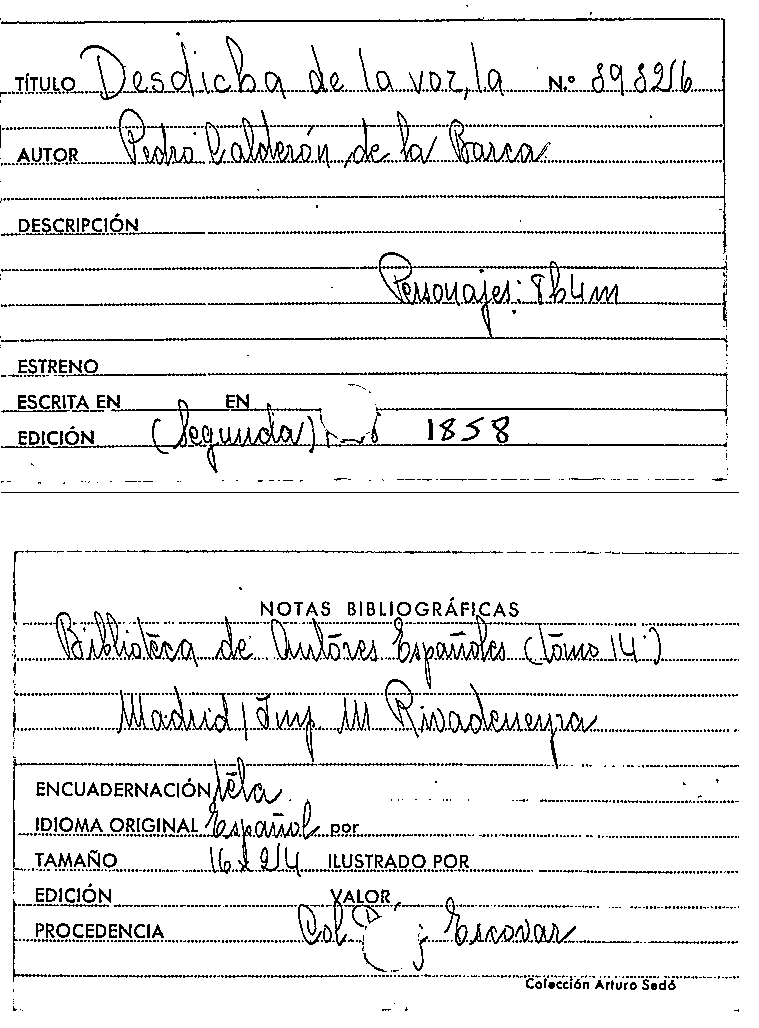 TÍTULO Desdicha de la voz, la N.º 39326
AUTOR Pedro Calderón de la Barca
DESCRIPCIÓN
Personajes: 8h4m
ESTRENO
ESCRITA EN EN
EDICIÓN (Segunda) 1858
NOTAS BIBLIOGRÁFICAS
Biblioteca de Autores Españoles (tomo 14)
Madrid / Imp M Rivadeneyra
ENCUADERNACIÓN tela
IDIOMA ORIGINAL Español por
TAMAÑO 16 x 24 ILUSTRADO POR
EDICIÓN VALOR
PROCEDENCIA Col Escovar
Colección Arturo Sedó